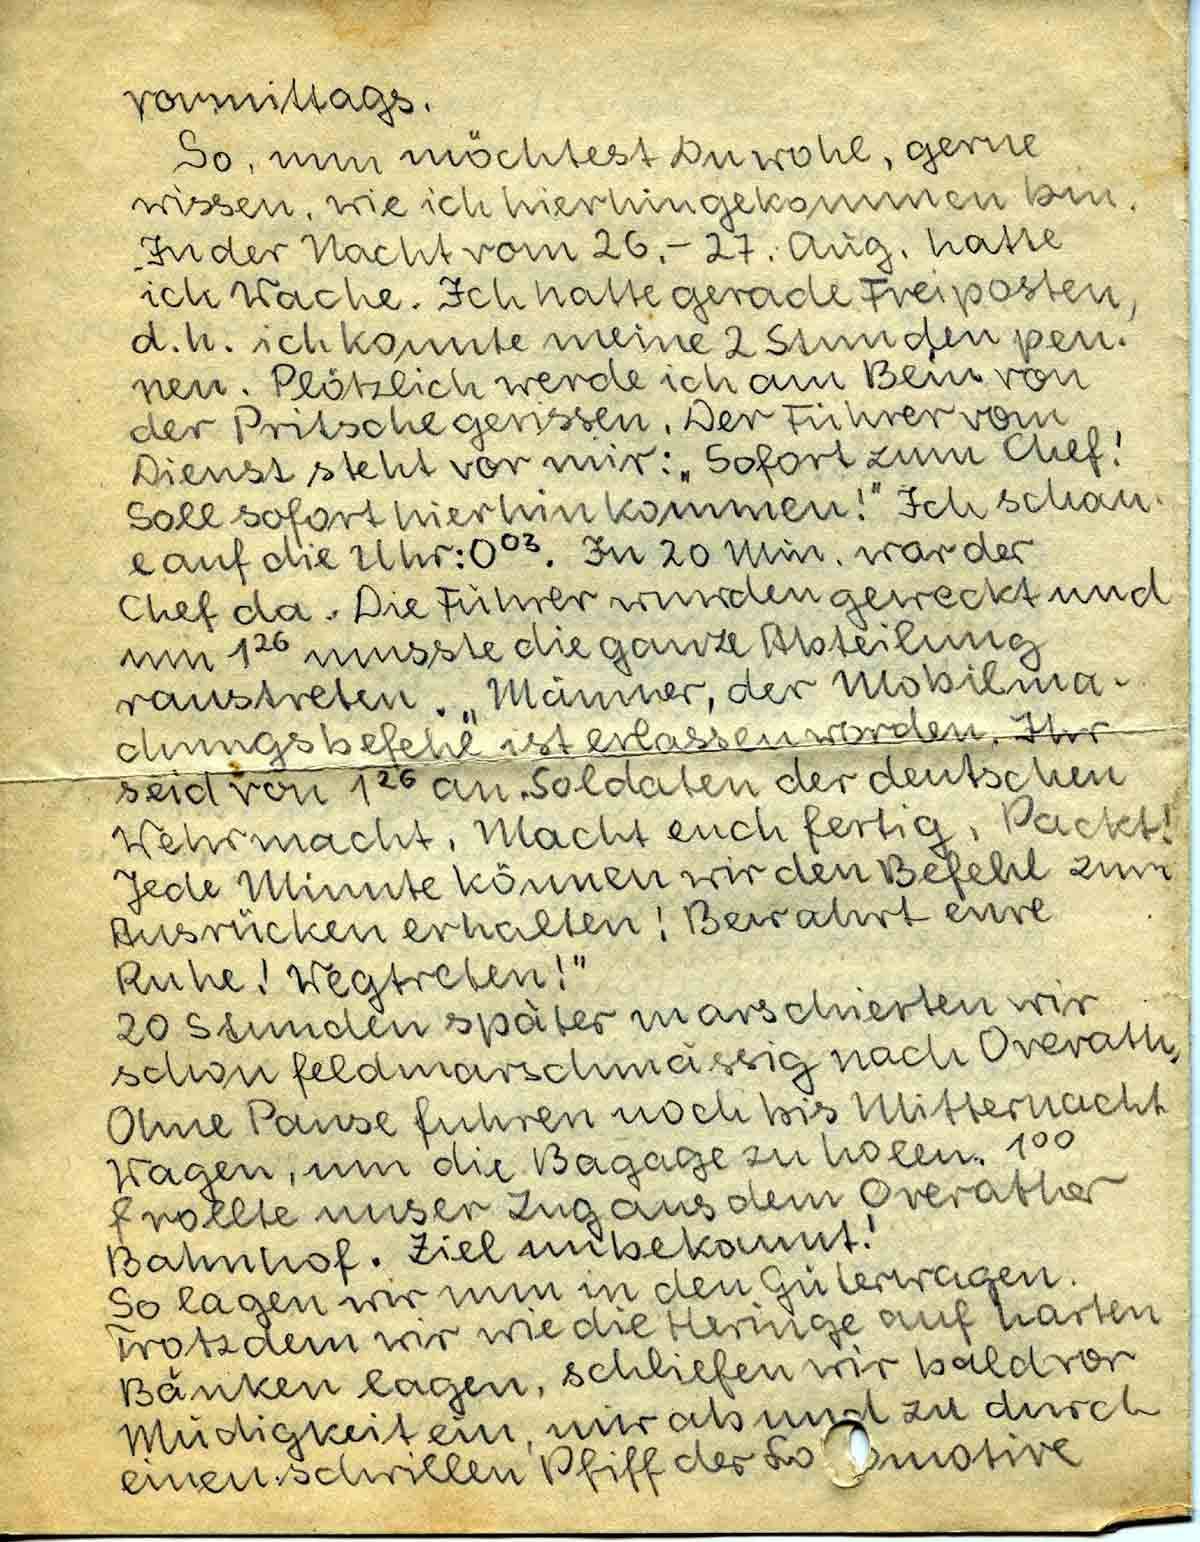 vormittags.
So, nun möchtest Du wohl, gerne
wissen, wie ich hierhingekommen bin.
In der Nacht vom 26.-27. Aug. hatte
ich Wache. Ich hatte gerade Freiposten,
d.h. ich konnte meine 2 Stunden pen-
nen. Plötzlich werde ich am Bein von
der Pritsche gerissen. Der Führer vom
Dienst steht vor mir: „Sofort zum Chef!
Soll sofort hierhin kommen!" Ich schau-
e auf die Uhr: 0⁰³. In 20 Min. war der
Chef da. Die Führer wurden geweckt und
um 1²⁶ musste die ganze Abteilung
raustreten. „Männer, der Mobilma-
chungsbefehl ist erlassen worden. Ihr
seid von 1²⁶ an Soldaten der deutschen
Wehrmacht. Macht euch fertig, Packt!
Jede Minute können wir den Befehl zum
Ausrücken erhalten! Bewahrt eure
Ruhe! Wegtreten!"
20 Stunden später marschierten wir
schon feldmarschmässig nach Overath,
Ohne Pause fuhren noch bis Mitternacht
Wagen, um die Bagage zu holen. 1⁰⁰
rollte unser Zug aus dem Overather
Bahnhof. Ziel unbekannt!
So lagen wir nun in den Güterwagen.
Trotzdem wir wie die Heringe auf harten
Bänken lagen, schliefen wir bald vor
Müdigkeit ein, nur ab und zu durch
einen schrillen Pfiff der Lokomotive